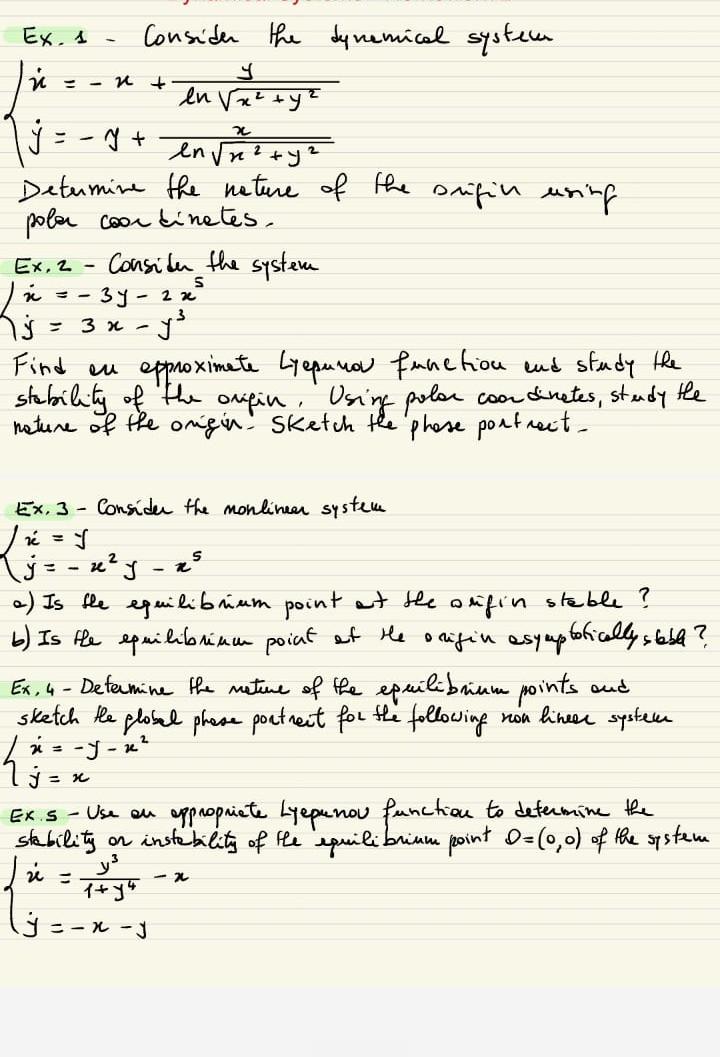 Ex. 1 - Consider the dynamical system
ẋ = - x + y / ln √x² + y²
ẏ = - y + x / ln √x² + y²
Determine the nature of the origin using
polar coordinates.
Ex. 2 - Consider the system
ẋ = - 3y - 2x⁵
ẏ = 3x - y³
Find an approximate Lyapunov function and study the
stability of the origin. Using polar coordinates, study the
nature of the origin. Sketch the phase portrait.
Ex. 3 - Consider the nonlinear system
ẋ = y
ẏ = - x²y - x⁵
a) Is the equilibrium point at the origin stable?
b) Is the equilibrium point at the origin asymptotically stable?
Ex. 4 - Determine the nature of the equilibrium points and
sketch the global phase portrait for the following non linear system
ẋ = - y - x²
ẏ = x
Ex. 5 - Use an appropriate Lyapunov function to determine the
stability or instability of the equilibrium point O=(0,0) of the system
ẋ = y³ / 1+y⁴ - x
ẏ = - x - y